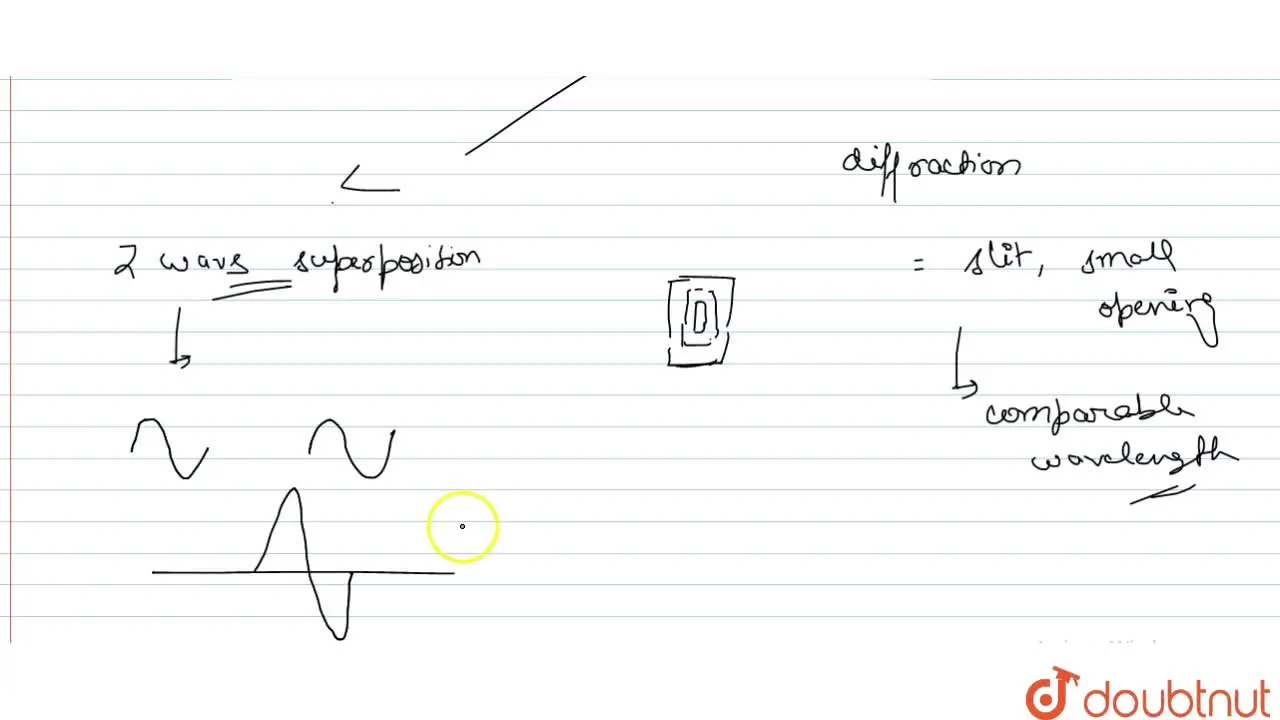 diffraction
2 wave superposition
= slit, small
opening
comparable
wavelength
doubtnut